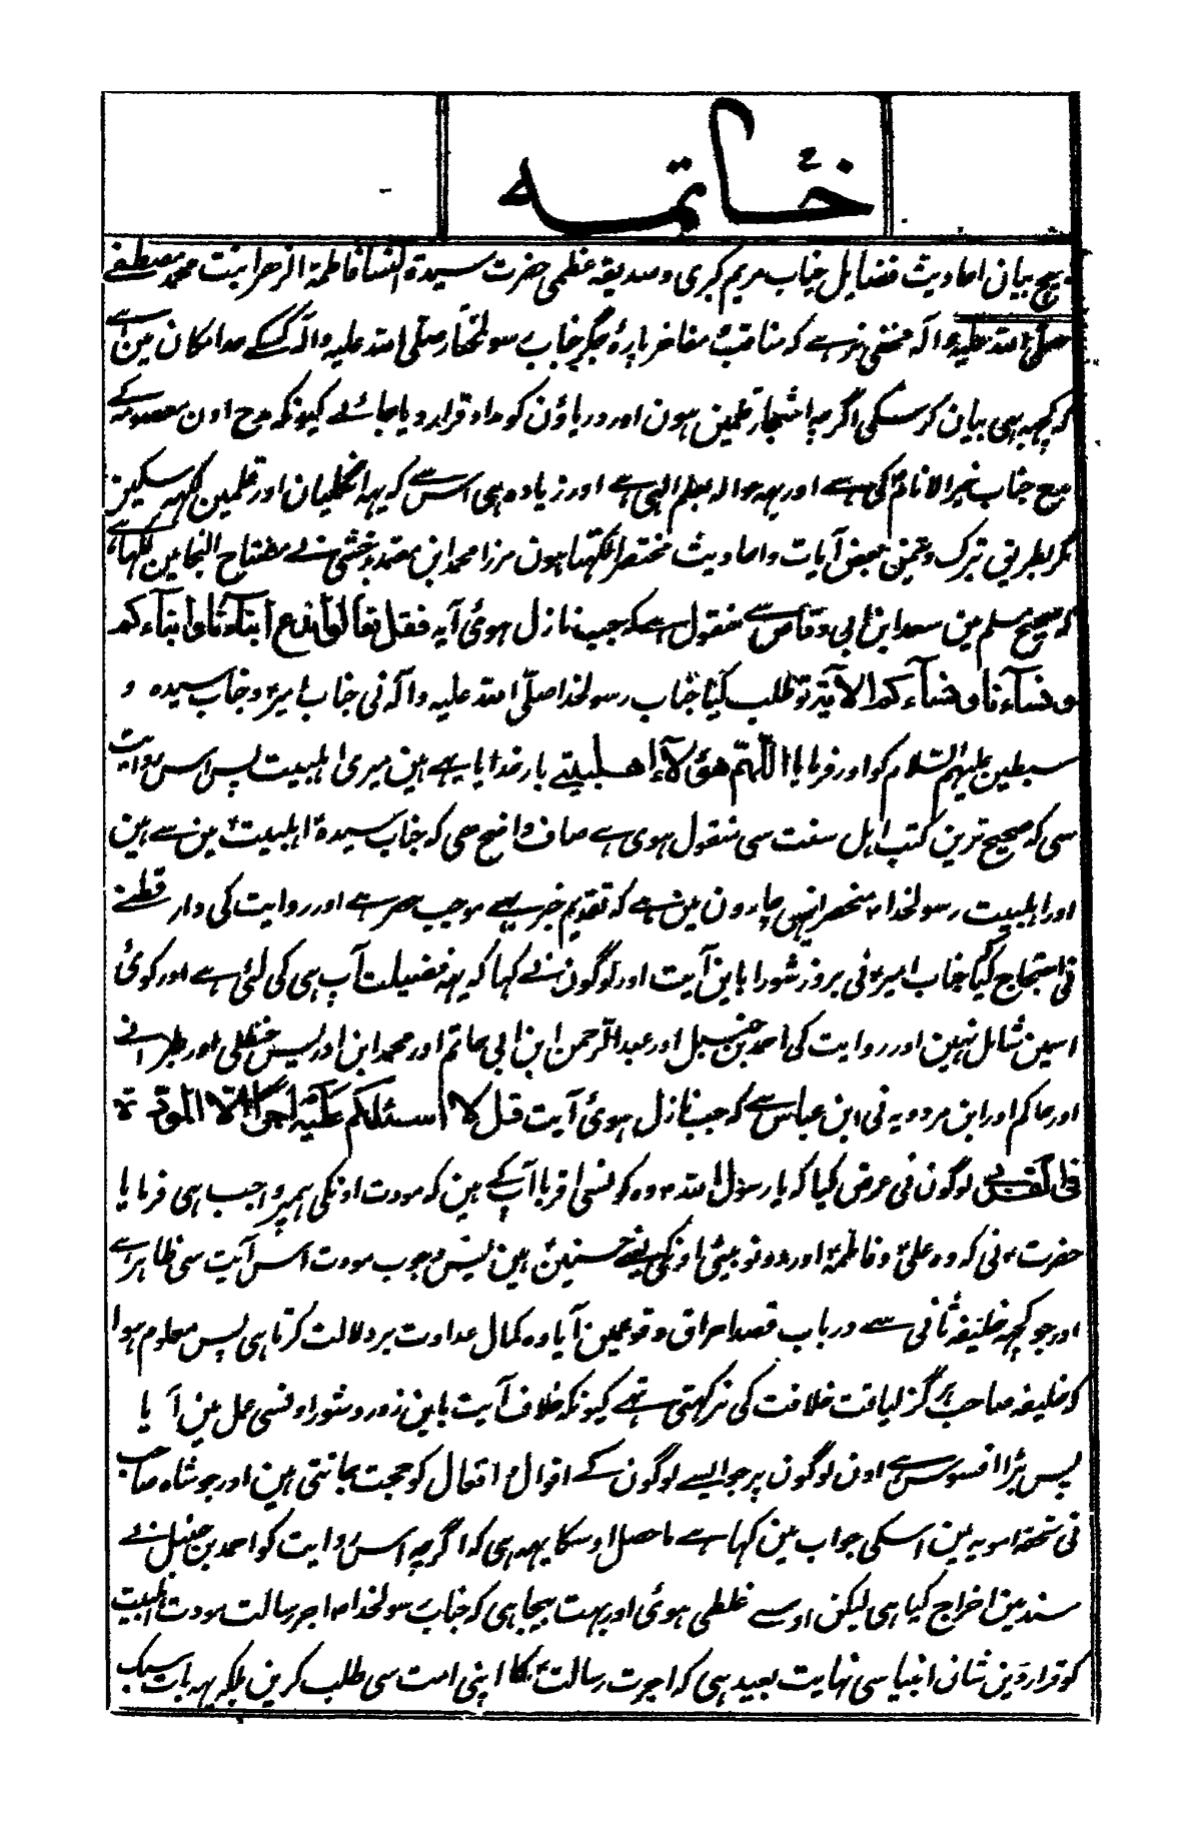 خاتمہ
بیچ بیان احادیث فضایل جناب مریم کبری و صدیقہ عظمی حضرت سیدۃ النسا فاطمۃ الزہرا بنت محمد مصطفے
صلی اللہ علیہ وآلہ مخفی نرہے کہ مناقب و مفاخر پارۂ جگر جناب رسولخدا صلی اللہ علیہ وآلہ کسکے حد امکان مین ہے
کہ کچہہ بہی بیان کرسکی اگرچہ اشجار قلمین ہون اور دریاؤن کو مداد قرار دیا جائے کیونکہ مدح اون معصومہ کے
مدح جناب خیر الانام کی ہے اور یہہ حوالہ بعلم الہی ہے اور زیادہ ہی اس سے کہ یہہ انگلیان اور قلمین لکہہ سکین
مگر بطریق تبرک و تیمن بعض آیات و احادیث مختصر لکہتا ہون مرزا محمد ابن معتمد بدخشی نے مفتاح النجا مین لکہا ہے
کہ صحیح مسلم مین سعد ابن ابی وقاص سے منقول ہے کہ جب نازل ہوئ آیہ فقل تعالوا ندع ابناءنا و ابناءکم
و نساءنا و نساءکم الآیۃ تو طلب کیا جناب رسولخدا صلی اللہ علیہ وآلہ نی جناب امیر و جناب سیدہ و
سبطین علیہم السلام کو اور فرمایا اللّٰہم ہؤلاء اہلبیتے بار خدایا یہ ہین میری اہلبیت پس اس روایت
سی کہ صحیح ترین کتب اہل سنت سی منقول ہوی ہے صاف واضح ہی کہ جناب سیدہ اہلبیت مین سے ہین
اور اہلبیت رسولخدا منحصر انہین چارون مین ہے کہ تقدیم خبر یہے موجب حصر ہے اور روایت کی دار قطنے
نی احتجاج کیا جناب امیر نی بروز شورا باین آیت اور لوگون نے کہا کہ یہہ فضیلت آپ ہی کی لئی ہے اور کوئ
اسین شامل نہین اور روایت کی احمد بن حنبل اور عبد الرحمن ابن ابی حاتم اور محمد ابن ادریس حنظلی اور طبرانے
اور حاکم اور ابن مردویہ نی ابن عباس سے کہ جب نازل ہوئ آیت قل لا اسئلکم علیہ اجرا الا المودۃ
فی القربے لوگون نی عرض کیا کہ یا رسول اللہ وہ کونسی اقربا آپ کے ہین کہ مودت اونکی ہمپر واجب ہی فرمایا
حضرت نی کہ وہ علی و فاطمہ اور دونو بیٹی اونکی یعنے حسنین ہین پس وجوب مودت اس آیت سی ظاہر ہے
اور جو کچہہ خلیفۂ ثانی سے در باب قصد احراق وقوعمین آیا وہ کمال عداوت پر دلالت کرتا ہی پس معلوم ہوا
کہ خلیفہ صاحب ہرگز لیاقت خلافت کی نرکہتی تہے کیونکہ خلاف آیت باین زور و شور اونسی عمل مین آیا
پس بڑا افسوس ہے اون لوگون پر جو ایسے لوگون کے اقوال و افعال کو حجت جانتی ہین اور جو شاہ صاحب
نی تحفہ امویہ مین اسکی جواب مین کہا ہے ماحصل اوسکا یہہ ہی کہ اگرچہ اس روایت کو احمد بن حنبل نے
سند مین اخراج کیا ہی لیکن اوسے غلطی ہوئ اور بہت بیجا ہی کہ جناب رسولخدا اجر رسالت مودت اہلبیت
کو قرار دین شانی انبیا سی نہایت بعید ہی کہ اجرت رسالت کا اپنی امت سی طلب کرین بلکہ یہہ بات سبک